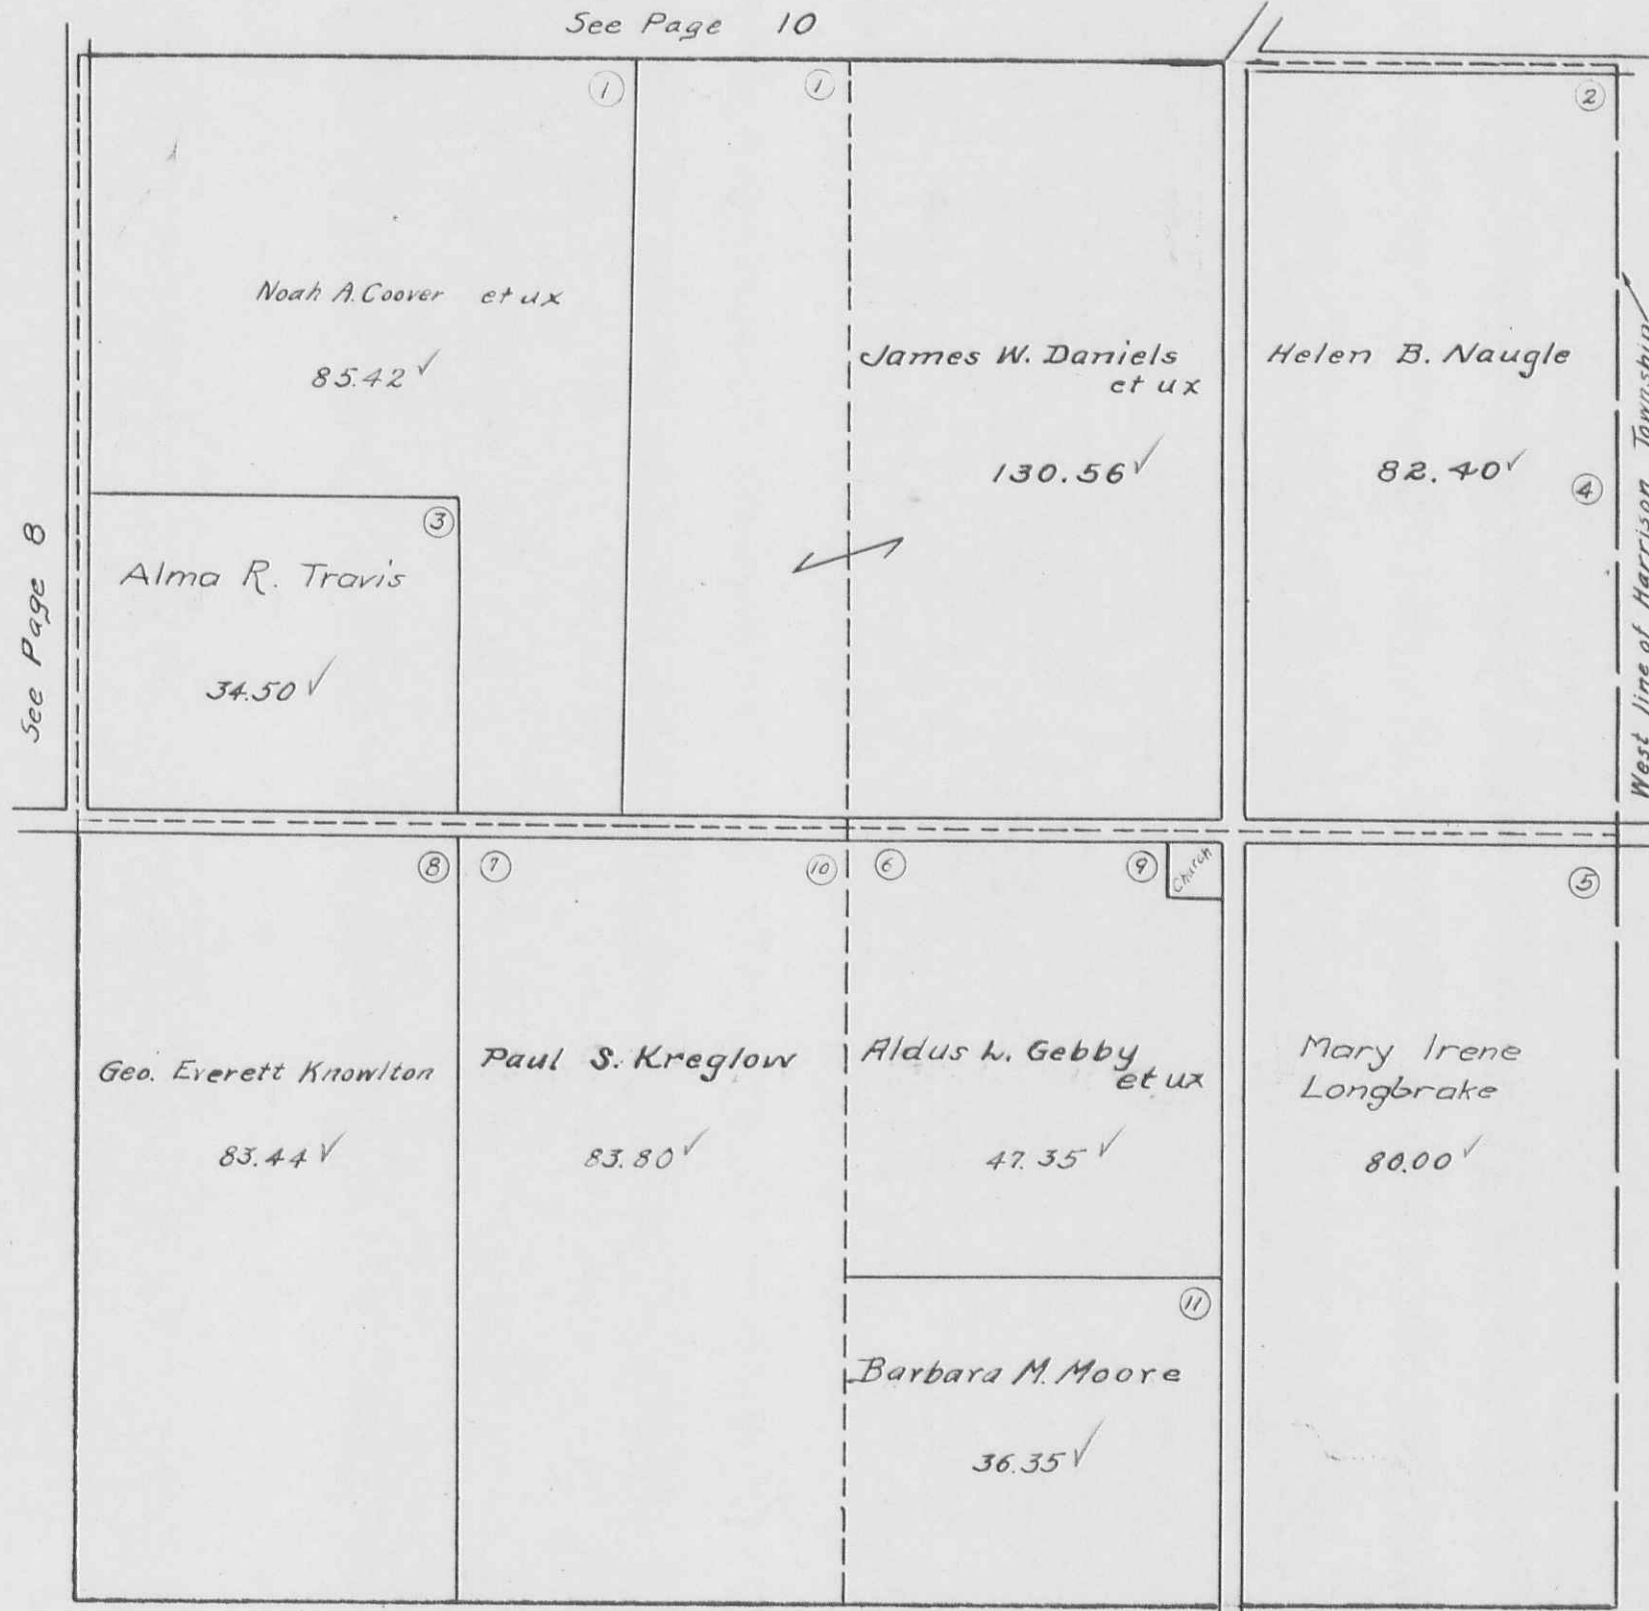 See Page 10
1
1
2
Noah A. Coover et ux
85.42 ✓
James W. Daniels
et ux
130.56 ✓
Helen B. Naugle
82.40 ✓
4
West line of Harrison Township
See Page 8
3
Alma R. Travis
34.50 ✓
8
7
10
6
9
Church
5
Geo. Everett Knowlton
83.44 ✓
Paul S. Kreglow
83.80 ✓
Aldus L. Gebby
et ux
47.35 ✓
Mary Irene
Longbrake
80.00 ✓
11
Barbara M. Moore
36.35 ✓